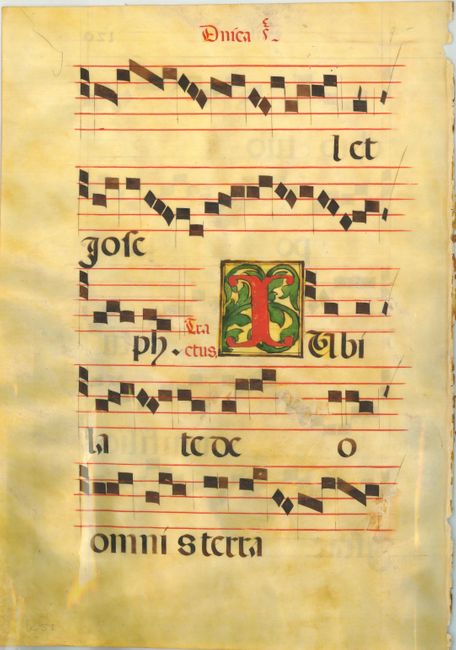 Dnica
l et
Josc
ph. Tra
ctus, I Ubi
la te de o
omni s terra